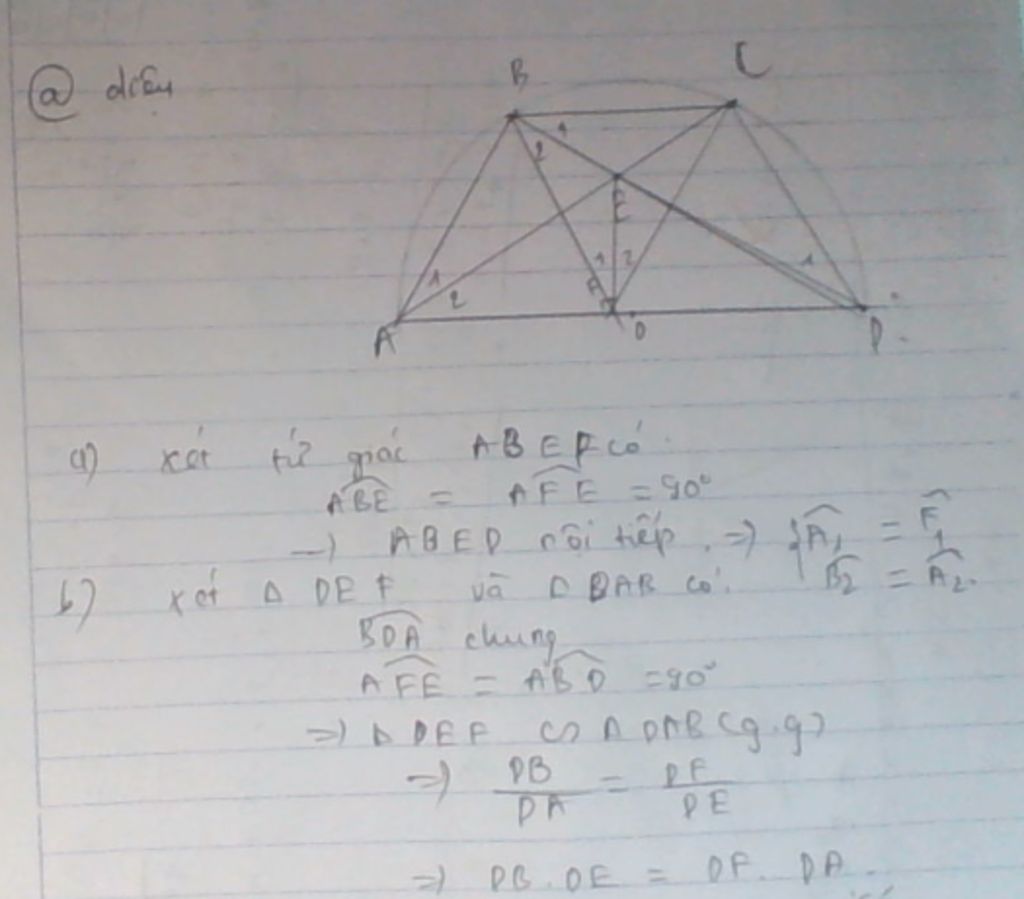 ⓐ diệu
B
C
1
2
E
1
1
2
1
2
F
A
O
D.
a) xét tứ giác ABEF có
ABE = AFE = 90°
→ ABED nội tiếp. ⇒ { A₁ = F₁
B₂ = A₂.
b) xét Δ DEF và Δ DAB có:
BDA chung
AFE = ABD = 90°
⇒ Δ DEF ∽ Δ DAB (g.g)
⇒ DB/DA = DF/DE
⇒ DB.DE = DF.DA.